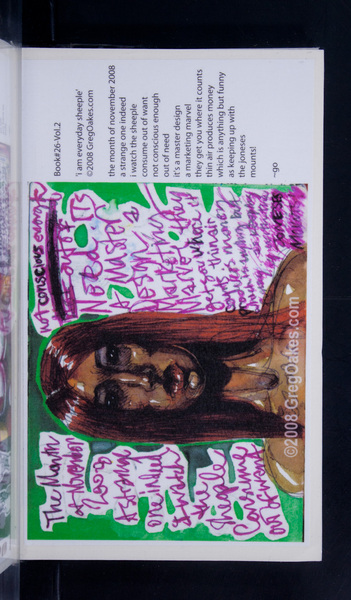 Book#26-Vol.2
'i am everyday sheeple'
©2008 GregOakes.com
the month of november 2008
a strange one indeed
i watch the sheeple
consume out of want
not conscious enough
out of need
it's a master design
a marketing marvel
they get you where it counts
thin air produces money
which is anything but funny
as keeping up with
the joneses
mounts!
~go
The Month
of November
2008
A strange
one indeed
I watch
the
sheeple
Consume
out of want
not conscious enough
out of
Need
A Master
Design
A Marketing
Marvel they
©2008 GregOakes.com